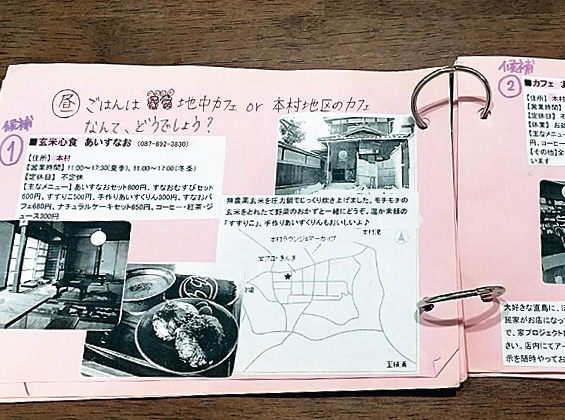 昼 ごはんは 地中カフェ or 本村地区のカフェ
なんて、どうでしょう？
候補
①
■玄米心食 あいすなお (087-892-3830)
【住所】本村
【営業時間】11:00～17:30(夏季)、11:00～17:00(冬季)
【定休日】不定休
【主なメニュー】あいすなおセット800円、すなおむすびセット
600円、すすりこ500円、手作りあいすくりん300円、すなおパ
フェ680円、ナチュラルケーキセット650円、コーヒー・紅茶・ジ
ュース300円
無農薬玄米を圧力鍋でじっくり炊き上げました。モチモチの
玄米をとれたて野菜のおかずと一緒にどうぞ。温か素麺の
「すすりこ」、手作りあいすくりんもおいしいよ♪
本村港
本村ラウンジ&アーカイブ
家プロ・きんざ
候補
②
■カフェ
【住所】本村
【営業時間】
【定休日】
【休業】
【主なメニュー
円、コーヒー
【その他】全
います
大好きな直島に、
民家がお店になっ
で、家プロジェクト
す。店内にてアー
示を随時やってお